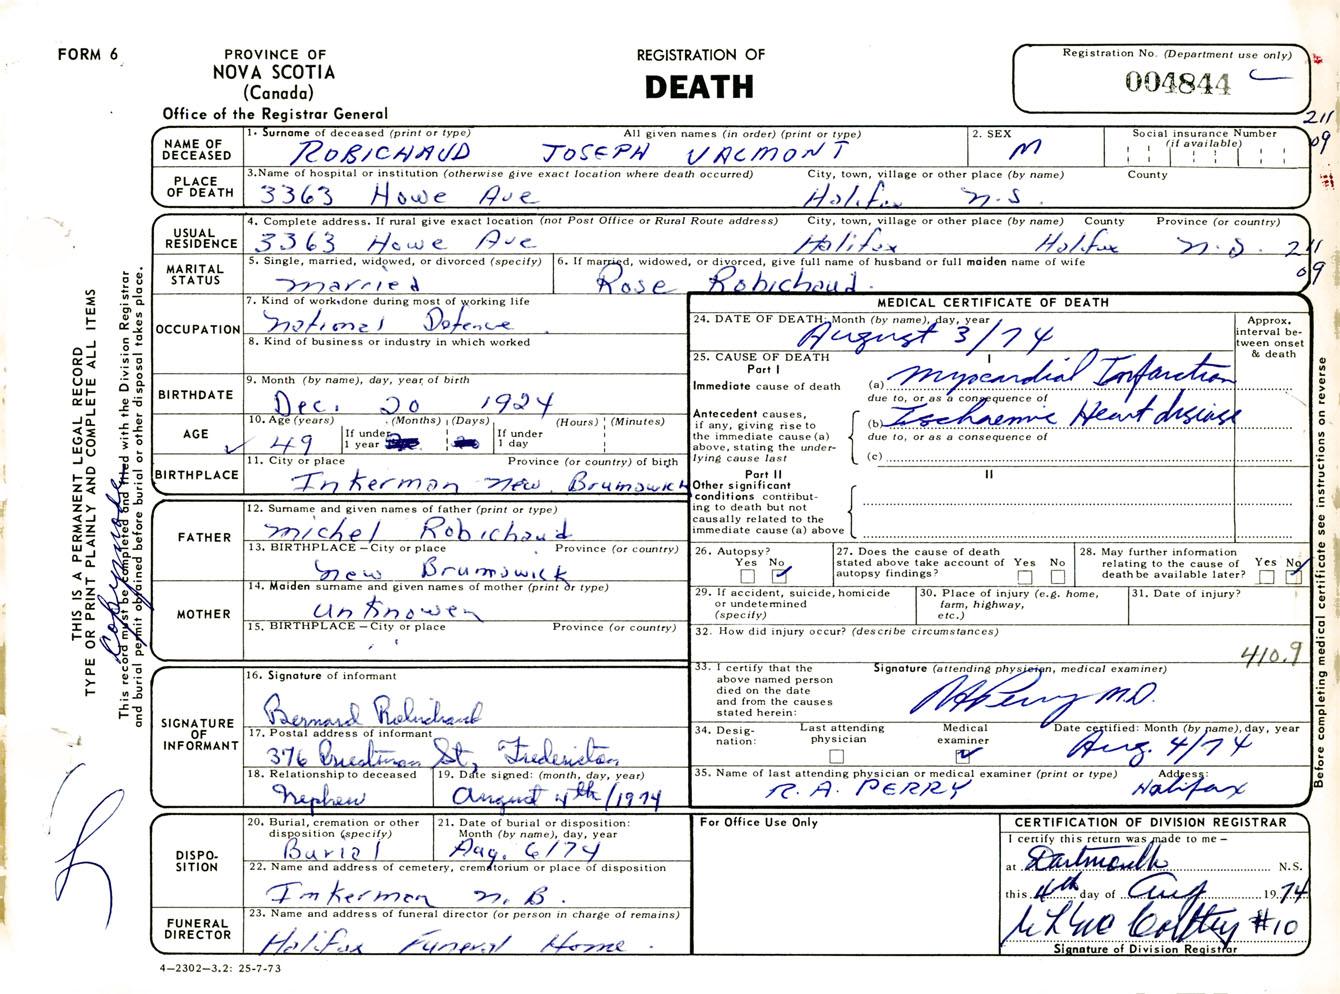 FORM 6
PROVINCE OF
NOVA SCOTIA
(Canada)
Office of the Registrar General
REGISTRATION OF
DEATH
Registration No. (Department use only)
004844
211
09
NAME OF DECEASED
1. Surname of deceased (print or type) All given names (in order) (print or type)
ROBICHAUD JOSEPH VALMONT
2. SEX
M
Social insurance Number
(if available)
PLACE OF DEATH
3. Name of hospital or institution (otherwise give exact location where death occurred) City, town, village or other place (by name) County
3363 Howe Ave Halifax N.S.
USUAL RESIDENCE
4. Complete address. If rural give exact location (not Post Office or Rural Route address) City, town, village or other place (by name) County Province (or country)
3363 Howe Ave Halifax Halifax N.S. 211
09
MARITAL STATUS
5. Single, married, widowed, or divorced (specify)
married
6. If married, widowed, or divorced, give full name of husband or full maiden name of wife
Rose Robichaud
OCCUPATION
7. Kind of work done during most of working life
National Defence
8. Kind of business or industry in which worked
BIRTHDATE
9. Month (by name), day, year of birth
Dec. 20 1924
AGE
10. Age (years) (Months) (Days) (Hours) (Minutes)
49 If under 1 year If under 1 day
BIRTHPLACE
11. City or place Province (or country) of birth
Inkerman New Brumswick
FATHER
12. Surname and given names of father (print or type)
michel Robichaud
13. BIRTHPLACE – City or place Province (or country)
New Brumswick
MOTHER
14. Maiden surname and given names of mother (print or type)
unknowen
15. BIRTHPLACE – City or place Province (or country)
SIGNATURE OF INFORMANT
16. Signature of informant
Bernard Robichaud
17. Postal address of informant
376 Priestman St, Fredericton
18. Relationship to deceased
Nephew
19. Date signed: (month, day, year)
August 4th/1974
DISPO-
SITION
20. Burial, cremation or other
disposition (specify)
Burial
21. Date of burial or disposition:
Month (by name), day, year
Aug. 6/74
22. Name and address of cemetery, crematorium or place of disposition
Inkerman N.B.
FUNERAL DIRECTOR
23. Name and address of funeral director (or person in charge of remains)
Halifax Funeral Home.
4–2302–3.2: 25-7-73
MEDICAL CERTIFICATE OF DEATH
24. DATE OF DEATH: Month (by name), day, year
August 3/74
Approx.
interval be-
tween onset
& death
25. CAUSE OF DEATH
Part I
I
Immediate cause of death
(a) Myocardial Infarction
due to, or as a consequence of
Antecedent causes,
if any, giving rise to
the immediate cause (a)
above, stating the under-
lying cause last
(b) Ischaemic Heart disease
due to, or as a consequence of
(c)
Part II
II
Other significant
conditions contribut-
ing to death but not
causally related to the
immediate cause (a) above
26. Autopsy?
Yes No
27. Does the cause of death
stated above take account of
autopsy findings?
Yes No
28. May further information
relating to the cause of
death be available later?
Yes No
29. If accident, suicide, homicide
or undetermined
(specify)
30. Place of injury (e.g. home,
farm, highway,
etc.)
31. Date of injury?
32. How did injury occur? (describe circumstances)
410.9
33. I certify that the
above named person
died on the date
and from the causes
stated herein:
Signature (attending physician, medical examiner)
RAPerry M.D.
34. Desig-
nation:
Last attending
physician
Medical
examiner
Date certified: Month (by name), day, year
Aug. 4/74
35. Name of last attending physician or medical examiner (print or type) Address:
R. A. PERRY Halifax
For Office Use Only
CERTIFICATION OF DIVISION REGISTRAR
I certify this return was made to me –
at Dartmouth N.S.
this 4th day of Aug 1974
#10
Signature of Division Registrar
THIS IS A PERMANENT LEGAL RECORD
TYPE OR PRINT PLAINLY AND COMPLETE ALL ITEMS
This record must be completed and filed with the Division Registrar
and burial permit obtained before burial or other disposal takes place.
Before completing medical certificate see instructions on reverse